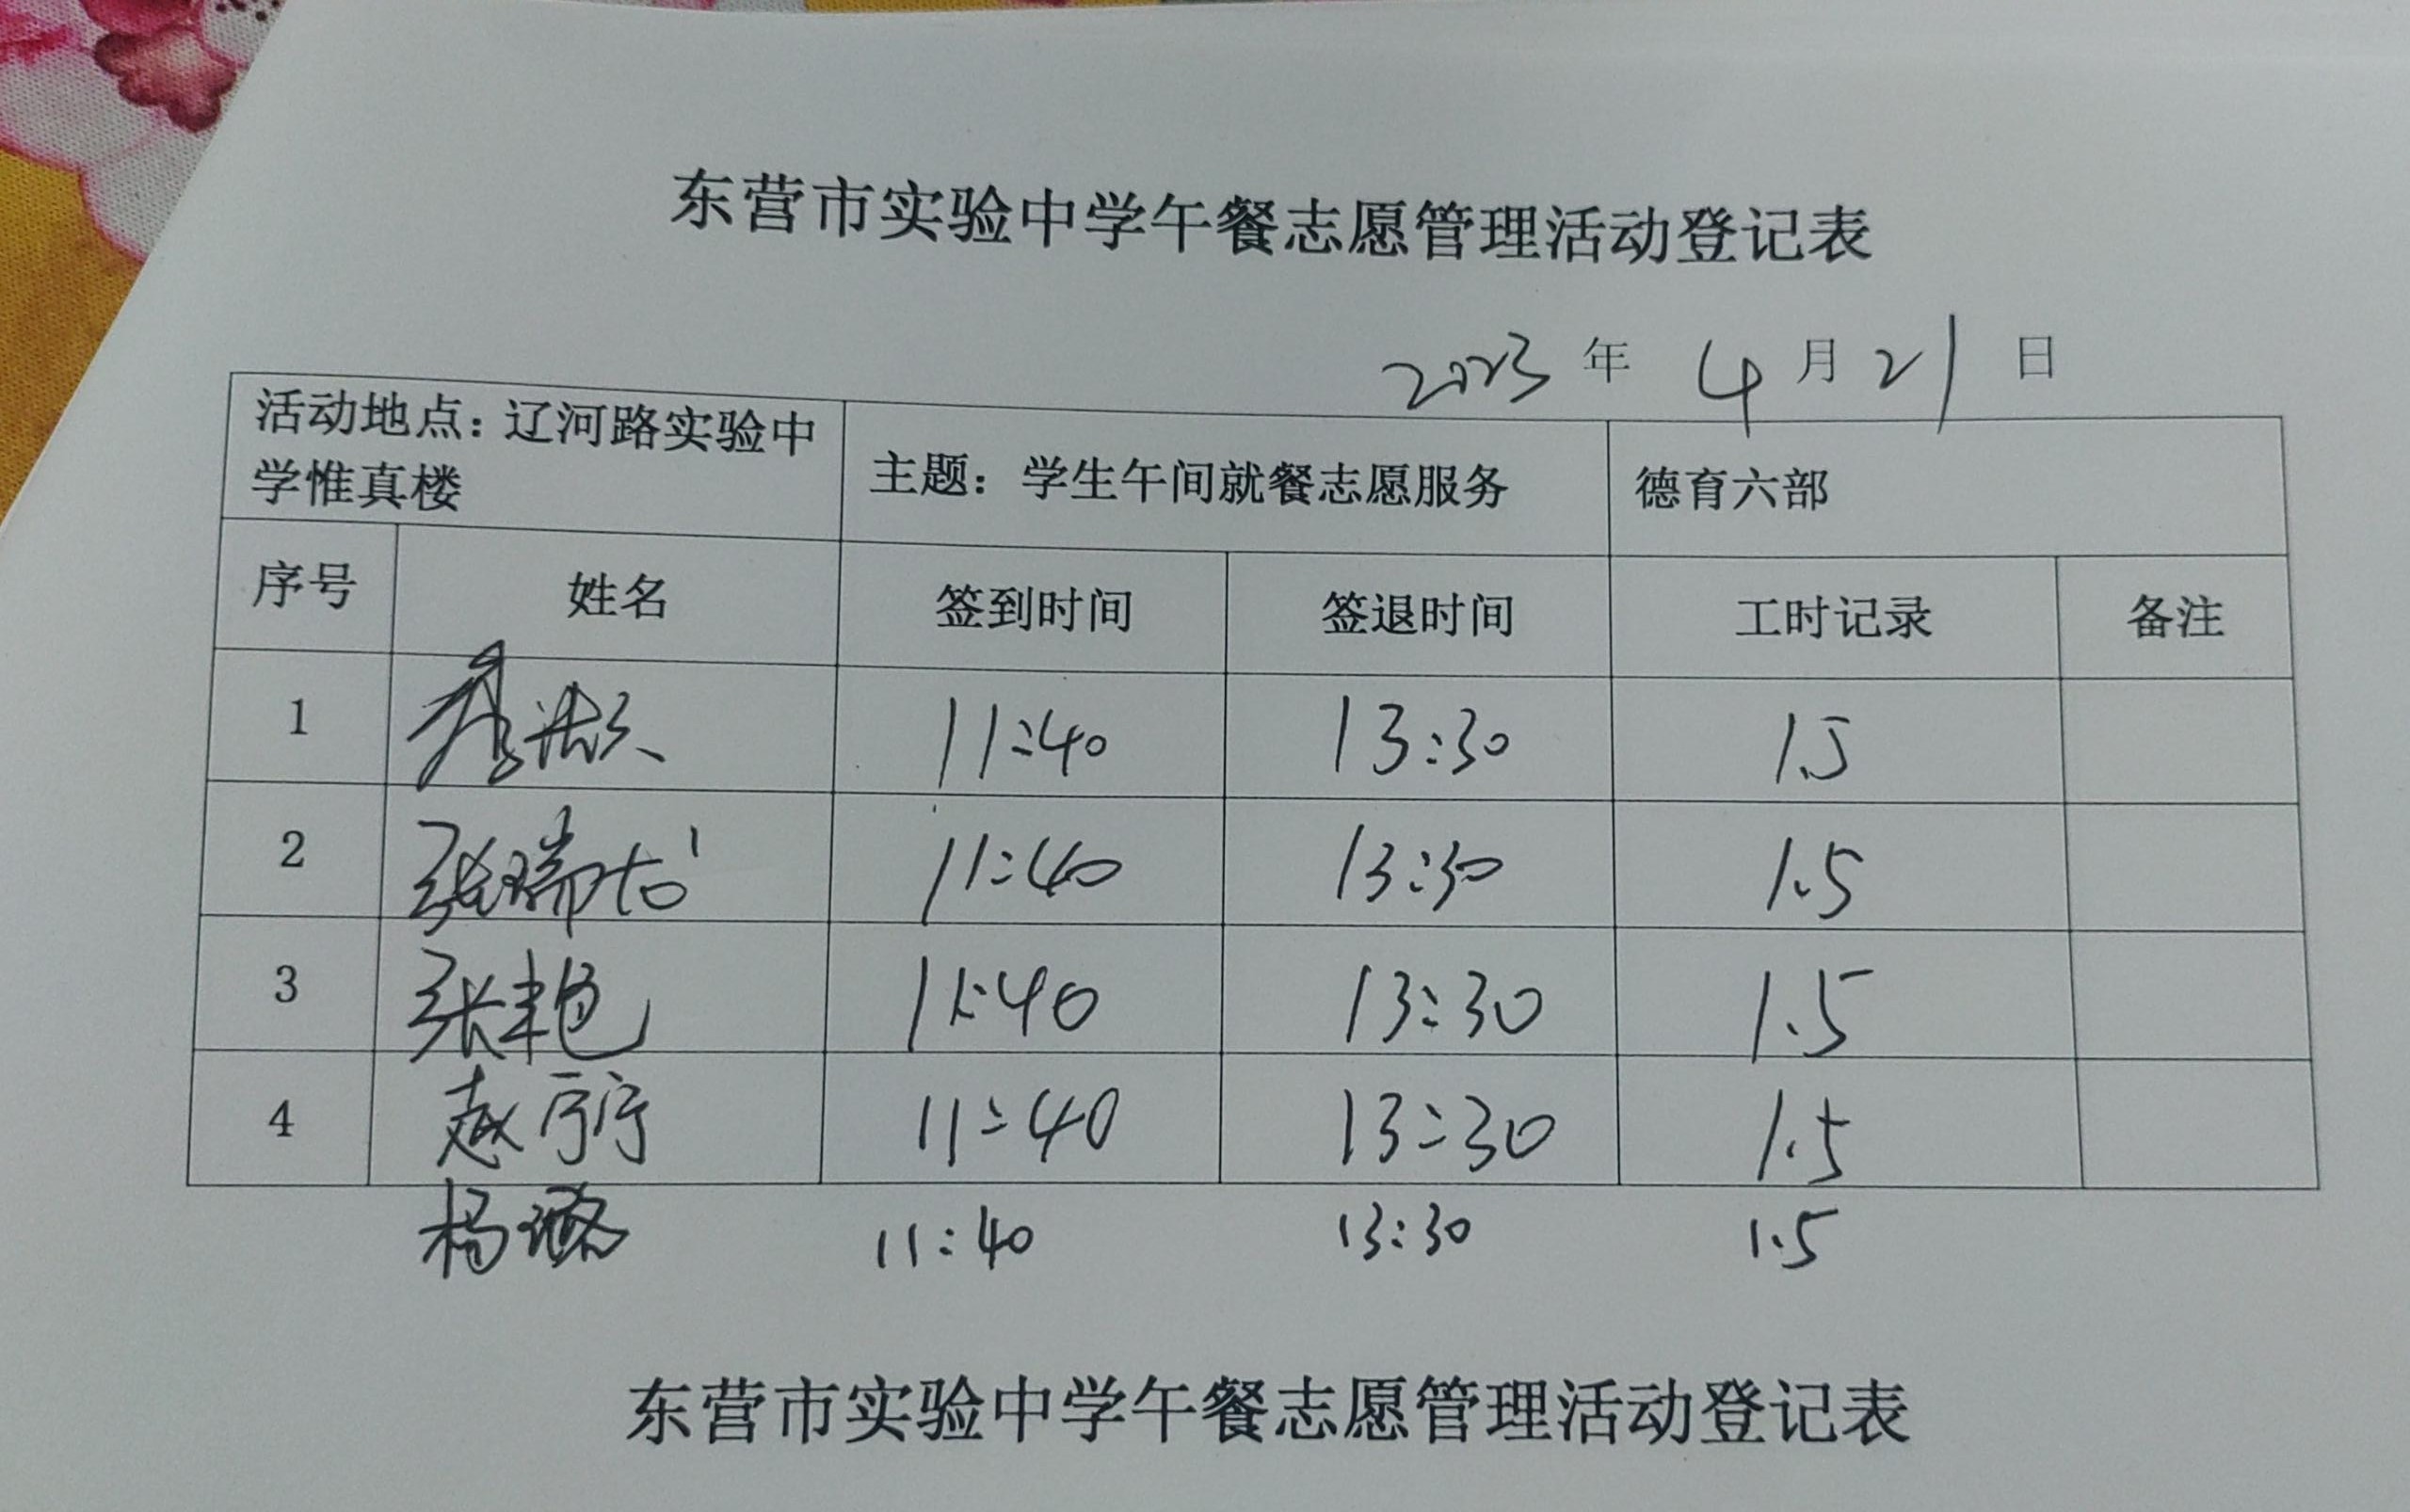 东营市实验中学午餐志愿管理活动登记表
2023 年 4 月 21 日
活动地点：辽河路实验中
学惟真楼
主题：学生午间就餐志愿服务
德育六部
序号 姓名 签到时间 签退时间 工时记录 备注
1 11:40 13:30 1.5
2 张瑞 11:40 13:30 1.5
3 张艳 11:40 13:30 1.5
4 赵 11:40 13:30 1.5
杨璐 11:40 13:30 1.5
东营市实验中学午餐志愿管理活动登记表